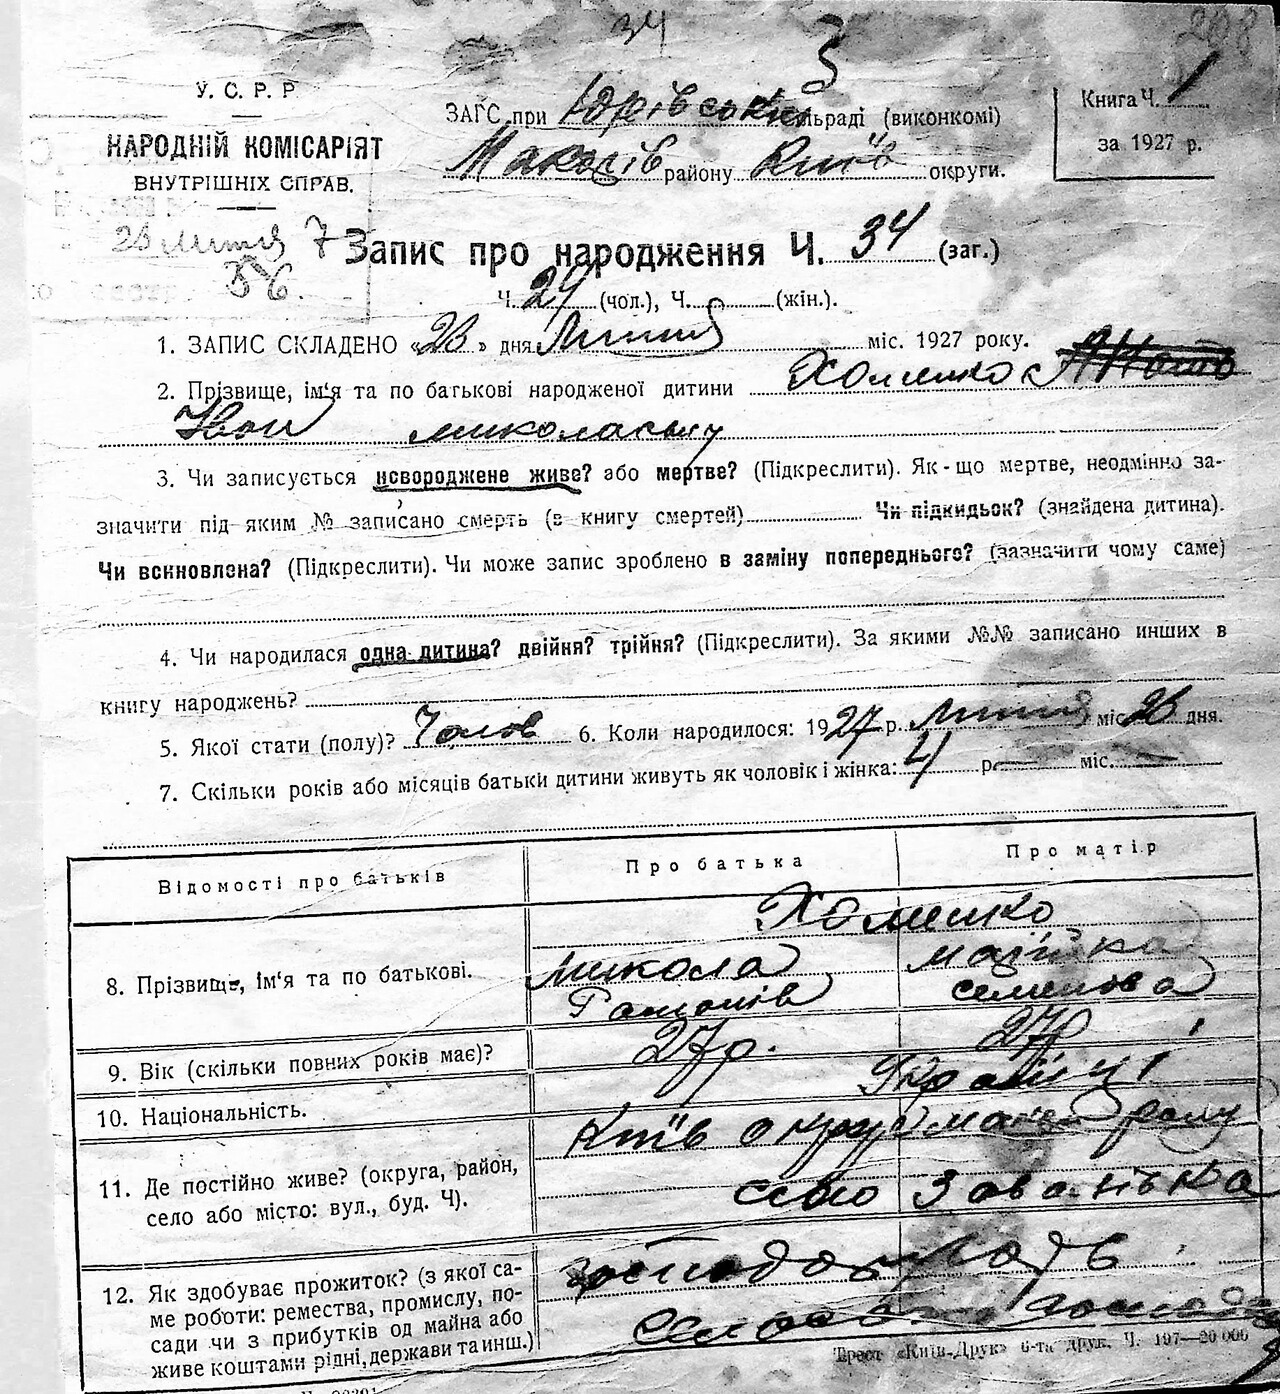 34
298
3
У. С. Р. Р.
НАРОДНІЙ КОМІСАРІЯТ
ВНУТРІШНІХ СПРАВ.
ЗАГС при Юрівській сільраді (виконкомі)
Макарів району Київ округи.
Книга Ч. 1
за 1927 р.
28 Липня 7
56.
Запис про народження Ч. 34 (заг.)
Ч. 24 (чол.), Ч. (жін.).
1. ЗАПИС СКЛАДЕНО «28» дня Липня міс. 1927 року.
2. Прізвище, ім‘я та по батькові народженої дитини Хоменко
Іван Миколаєвич
3. Чи записується новороджене живе? або мертве? (Підкреслити). Як-що мертве, неодмінно за-
значити під яким № записано смерть (в книгу смертей) Чи підкидьок? (знайдена дитина).
Чи всиновлена? (Підкреслити). Чи може запис зроблено в заміну попереднього? (зазначити чому саме)
4. Чи народилася одна дитина? двійня? трійня? (Підкреслити). За якими №№ записано инших в
книгу народжень?
5. Якої стати (полу)? Чолов 6. Коли народилося: 1927 р. Липня міс. 26 дня.
7. Скільки років або місяців батьки дитини живуть як чоловік і жінка: 4 р. — міс. —
Відомості про батьків
Про батька
Про матір
8. Прізвище, ім‘я та по батькові.
Хоменко
Микола
Марійка
Семенова
9. Вік (скільки повних років має)?
27 р.
27 р
10. Національність.
Українці
11. Де постійно живе? (округа, район,
село або місто: вул., буд. Ч).
Київ округ Макар рону
село Завалівка
12. Як здобуває прожиток? (з якої са-
ме роботи: ремества, промислу, по-
сади чи з прибутків од майна або
живе коштами рідні, держави та инш.)
Трест «Київ-Друк» 6-та друк. Ч. 197—20 000